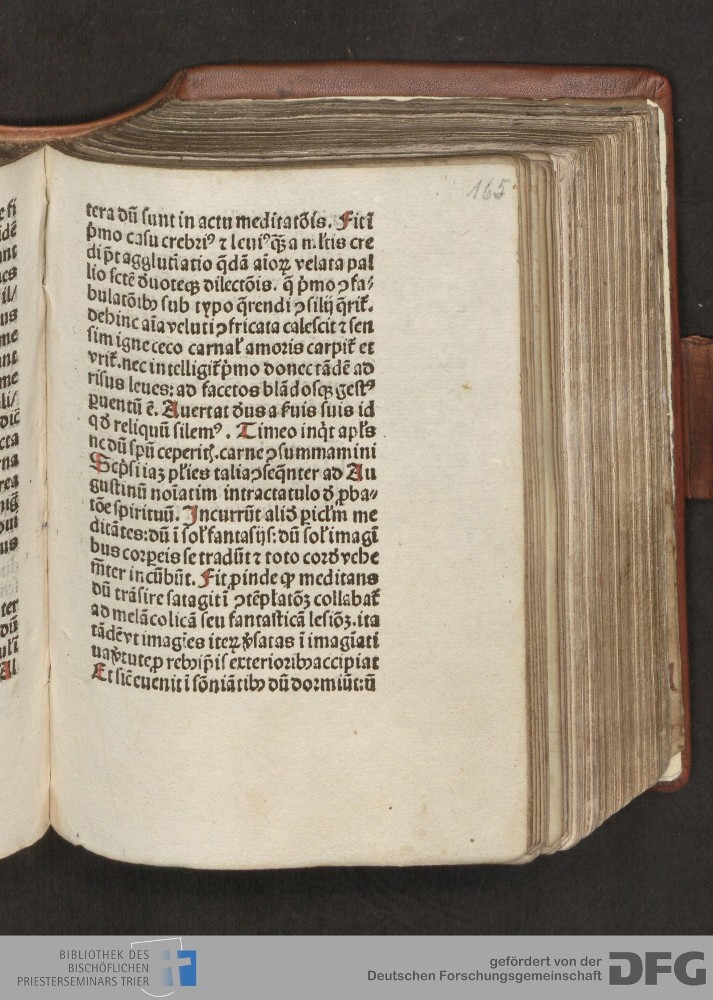 165
tera dū sunt in actu meditatōis. Fit ī
p̄mo casu crebriꝰ ⁊ leuiꝰ qȝ̄ a multis cre
di pt̄ agglutīatio q̄dā aīoꝝ velata pal
lio scte deuoteqȝ dilectōis. q̄ p̄mo ꝯfa⸗
bulatōibꝰ sub typo q̄rendi ꝯsilij q̄rit̄.
dehinc aīa veluti ꝯfricata calescit ⁊ sen
sim igne ceco carnal̄ amoris carpit̄ et
vrit̄. nec intelligit̄ p̄mo donec tādē ad
risus leues: ad facetos blādosqȝ gestꝰ
ꝑuentū ē. Auertat deus a ẜuis suis id
qd̄ reliquū silemꝰ. Timeo inq̇t apl̄s
ne dū spū ceperitꝭ. carne ꝯsummamini
Scp̄si iaȝ pl̄ies talia ꝯseq̄nter ad Au
gustinū noīatim in tractatulo d̄ ꝓba⸗
tōe spirituū. Incurrūt aliō ꝑicl̄m me
ditātes: dū ī sol̄ fantasijs: dū sol̄ imagī
bus corꝑeis se tradūt ⁊ toto corde vehe
m̄ter incūbūt. Fit ꝓinde ꝙ meditans
dū trāsire satagit ī ꝯtēplatōȝ collabat̄
ad melācolicā seu fantasticā lesiōȝ. ita
tādē vt imagīes iteꝝ v̄satas ī imagīati
ua v̄tute ꝓ rebꝰ ip̄is exterioribꝰ accipiat
Et sic̄ euenit ī sōniātibꝰ dū dormiūt: ū
e si
idē
nt
ues
il/
us
me
nt
me
li/
dic̄
cta
na
rea
us
ter
dū
Al
BIBLIOTHEK DES
BISCHÖFLICHEN
PRIESTERSEMINARS TRIER
gefördert von der
Deutschen Forschungsgemeinschaft
DFG